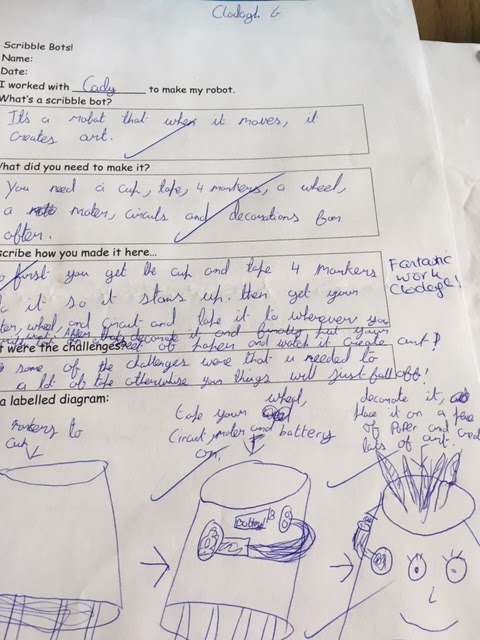 Clodagh G.
Scribble Bots!
Name:
Date:
I worked with Cady to make my robot.
What's a scribble bot?
It's a robot that when it moves, it
creates art.
What did you need to make it?
You need a cup, tape, 4 markers, a wheel,
a moter, circuts and decorations for
after.
scribe how you made it here...
first you get the cup and tape 4 markers
it so it stans up. then get your
wheel and circuit and tape it to wherever you
After that decorate it and finally put your
of paper and watch it create art!
t were the challenges?
some of the challenges were that u needed to
a lot of tape otherwise your things will just fall off!
Fantastic
work
Clodagh!
a labelled diagram:
markers to
cup
tape your wheel,
Circut, moter and battery
on.
decorate it,
place it on a piece
of Paper and create
lots of art.
battery